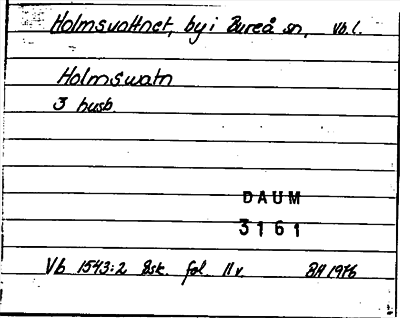 Holmsvattnet, by i Bureå sn, Vb.l.
Holmswatn
3 husb.
DAUM
3161
Vb 1543:2 Bsk. fol. 11 v. BH 1976